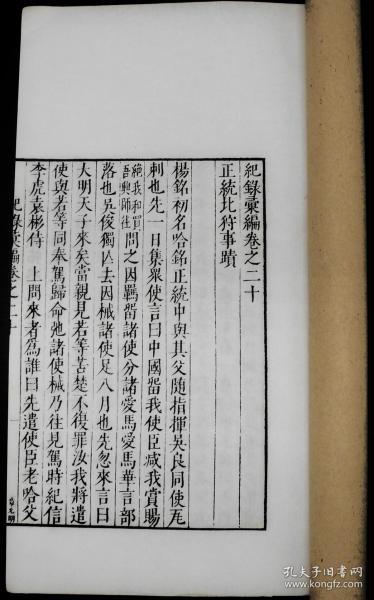 紀錄彙編卷之二十
正統北狩事蹟
楊銘初名哈銘正統中與其父随指揮吳良同使瓦
剌也先一日集衆使言曰中國留我使臣减我賞賜
絶我和買
吾與師往
問之因羈留諸使分諸愛馬愛馬華言部
落也吳俊獨以去因械諸使足八月也先忽來言曰
大明天子來矣當親見若等苦楚不復罪汝我將遣
使與若等同奉駕歸命弛諸使械乃往見駕時紀信
李虎袁彬侍 上問來者爲誰曰先遣使臣老哈父
紀錄彙編卷之二十
一
孔夫子旧书网